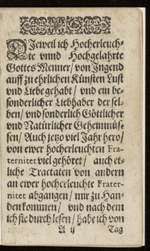 DIeweil ich Hocherleuch-
te vnnd Hochgelahrte
Gottes Menner / von Jugend
auff zu ehrlichen Künsten Lust
vnd Liebe gehabt / vnd ein be-
sonderlicher Liebhaber der sel-
ben / vnd sonderlich Göttlicher
vnd Natürlicher Geheimnüs-
sen / Auch jetzo viel Jahr hero /
von ewer hocherleuchten Fra-
ternitet viel gehöret / auch et-
liche Tractaten von andern
an ewer hocherleuchte Frater-
nitet abgangen / mir zu Han-
den kommen / vnd nach dem
ich sie durch lesen / habe ich von
A ij Tag